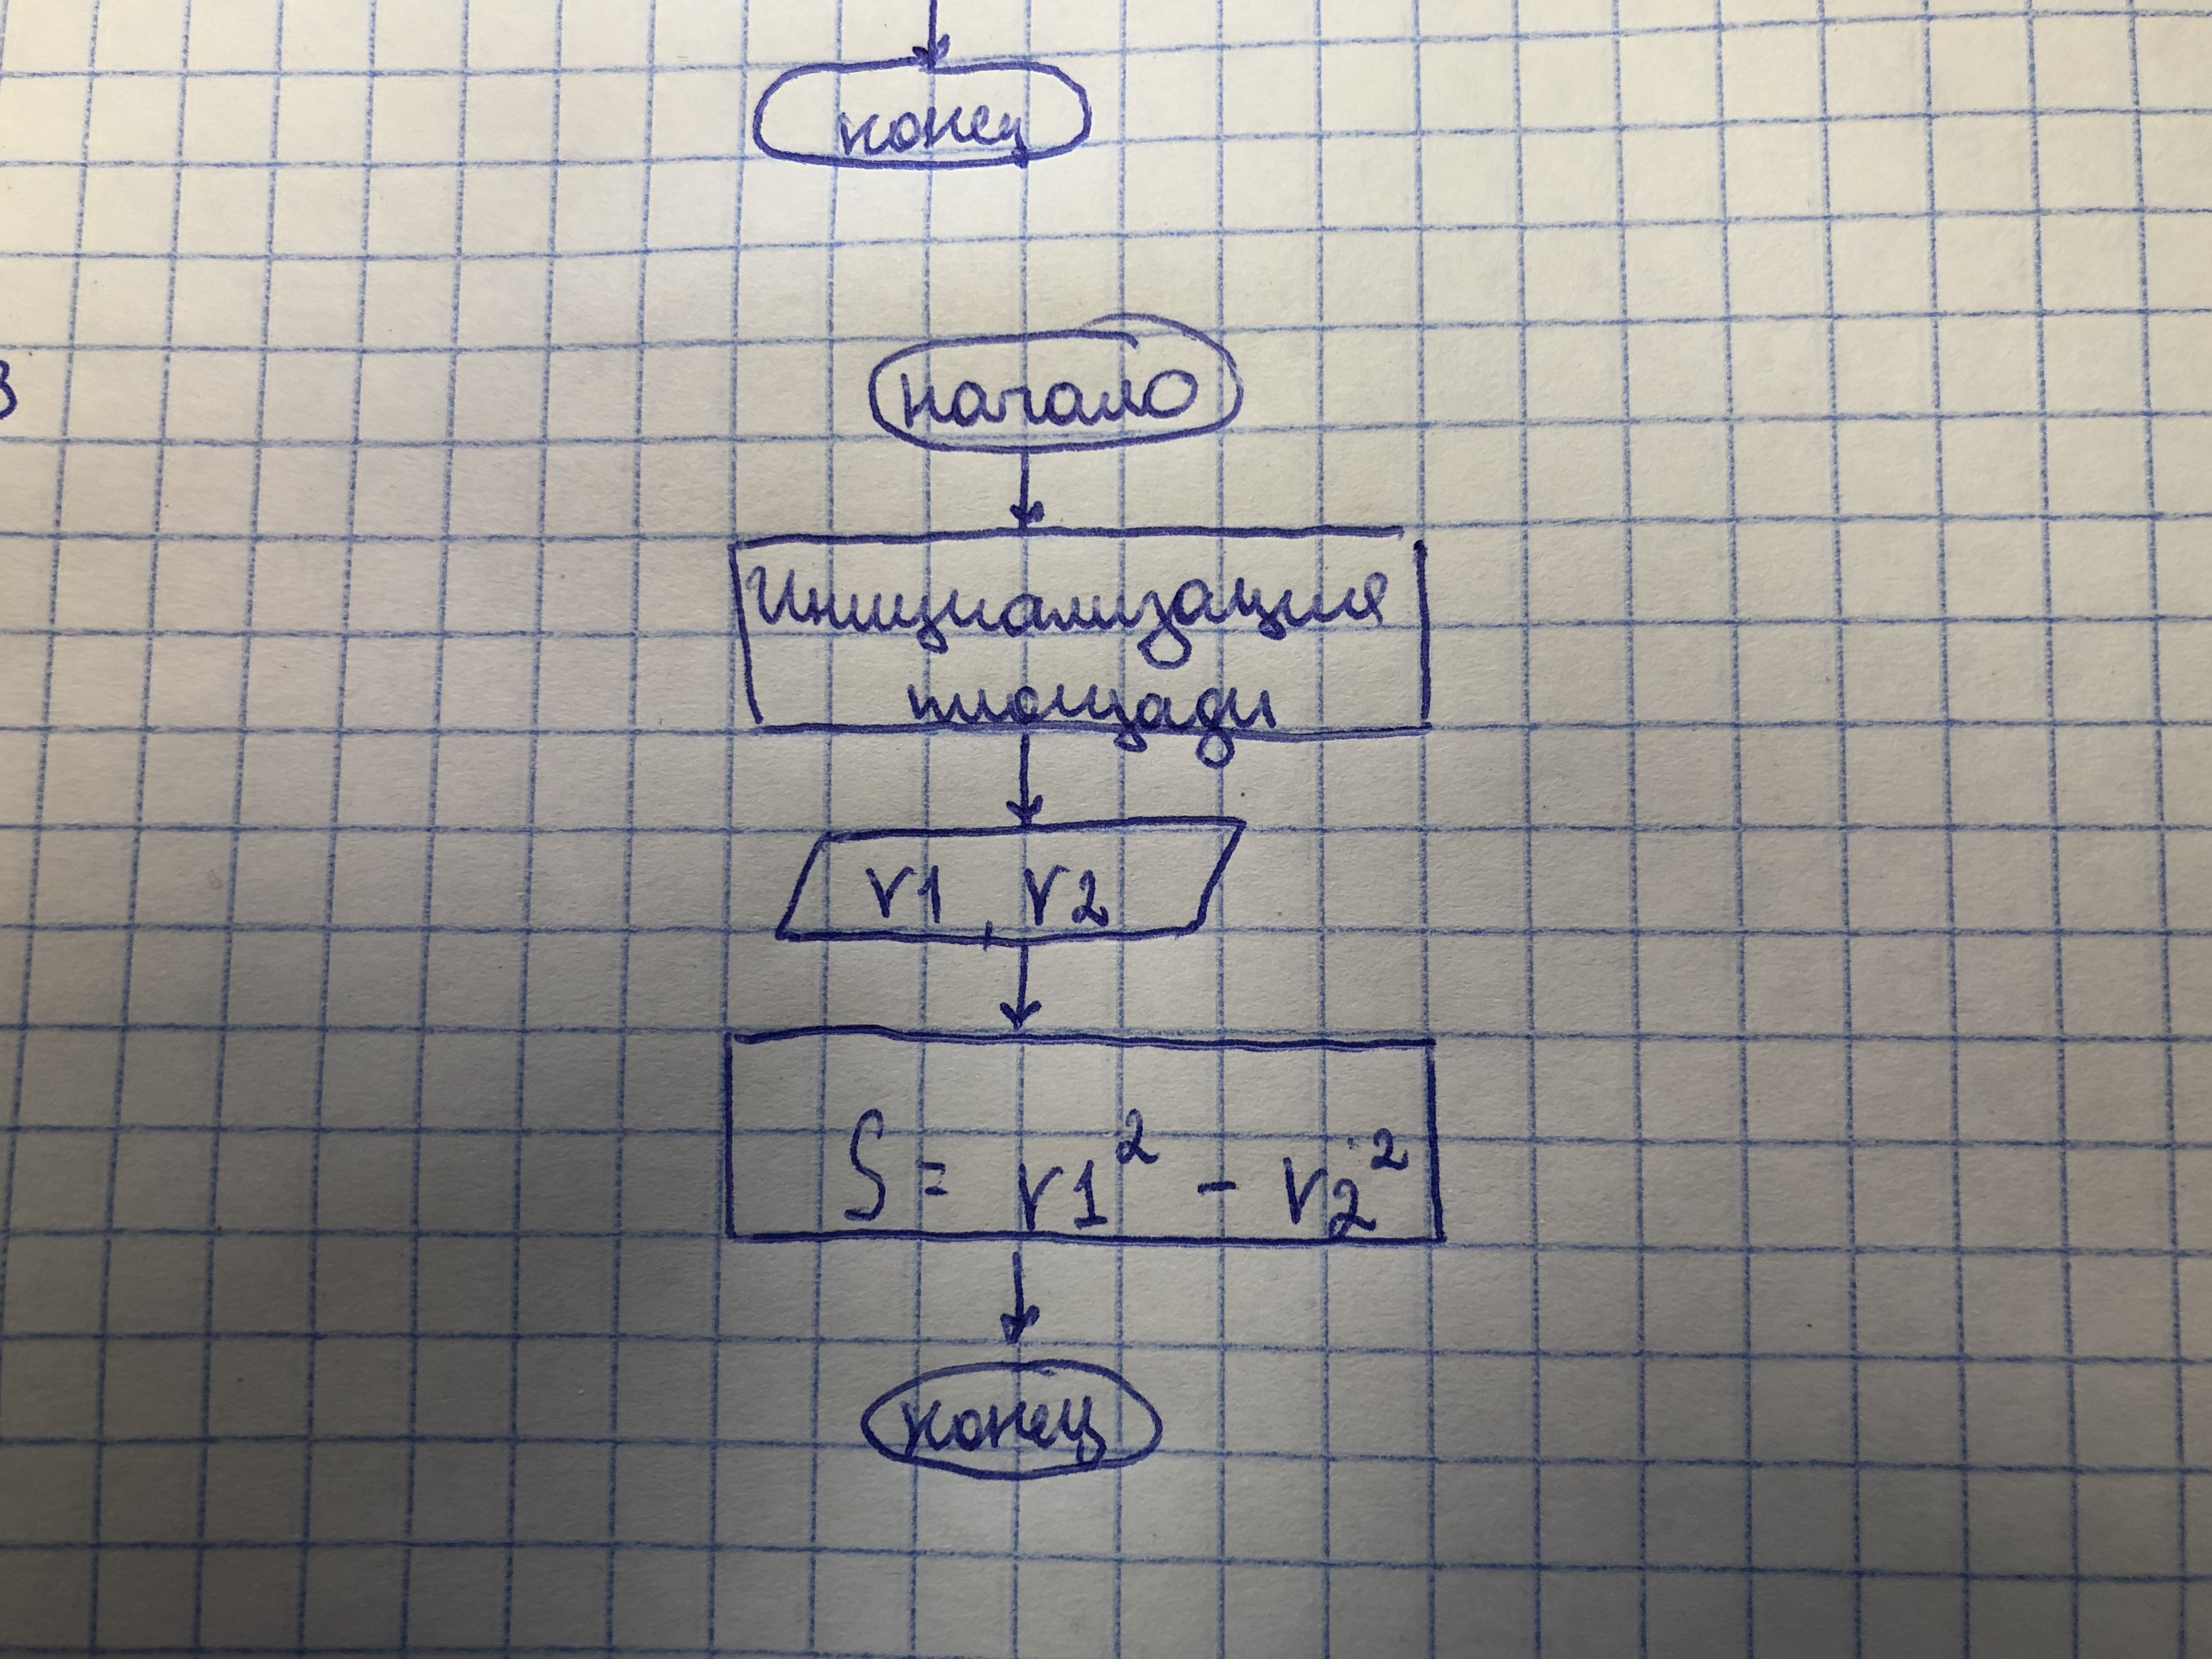 конец
3
начало
Инициализация
площади
r1, r2
S = r1² - r2²
конец